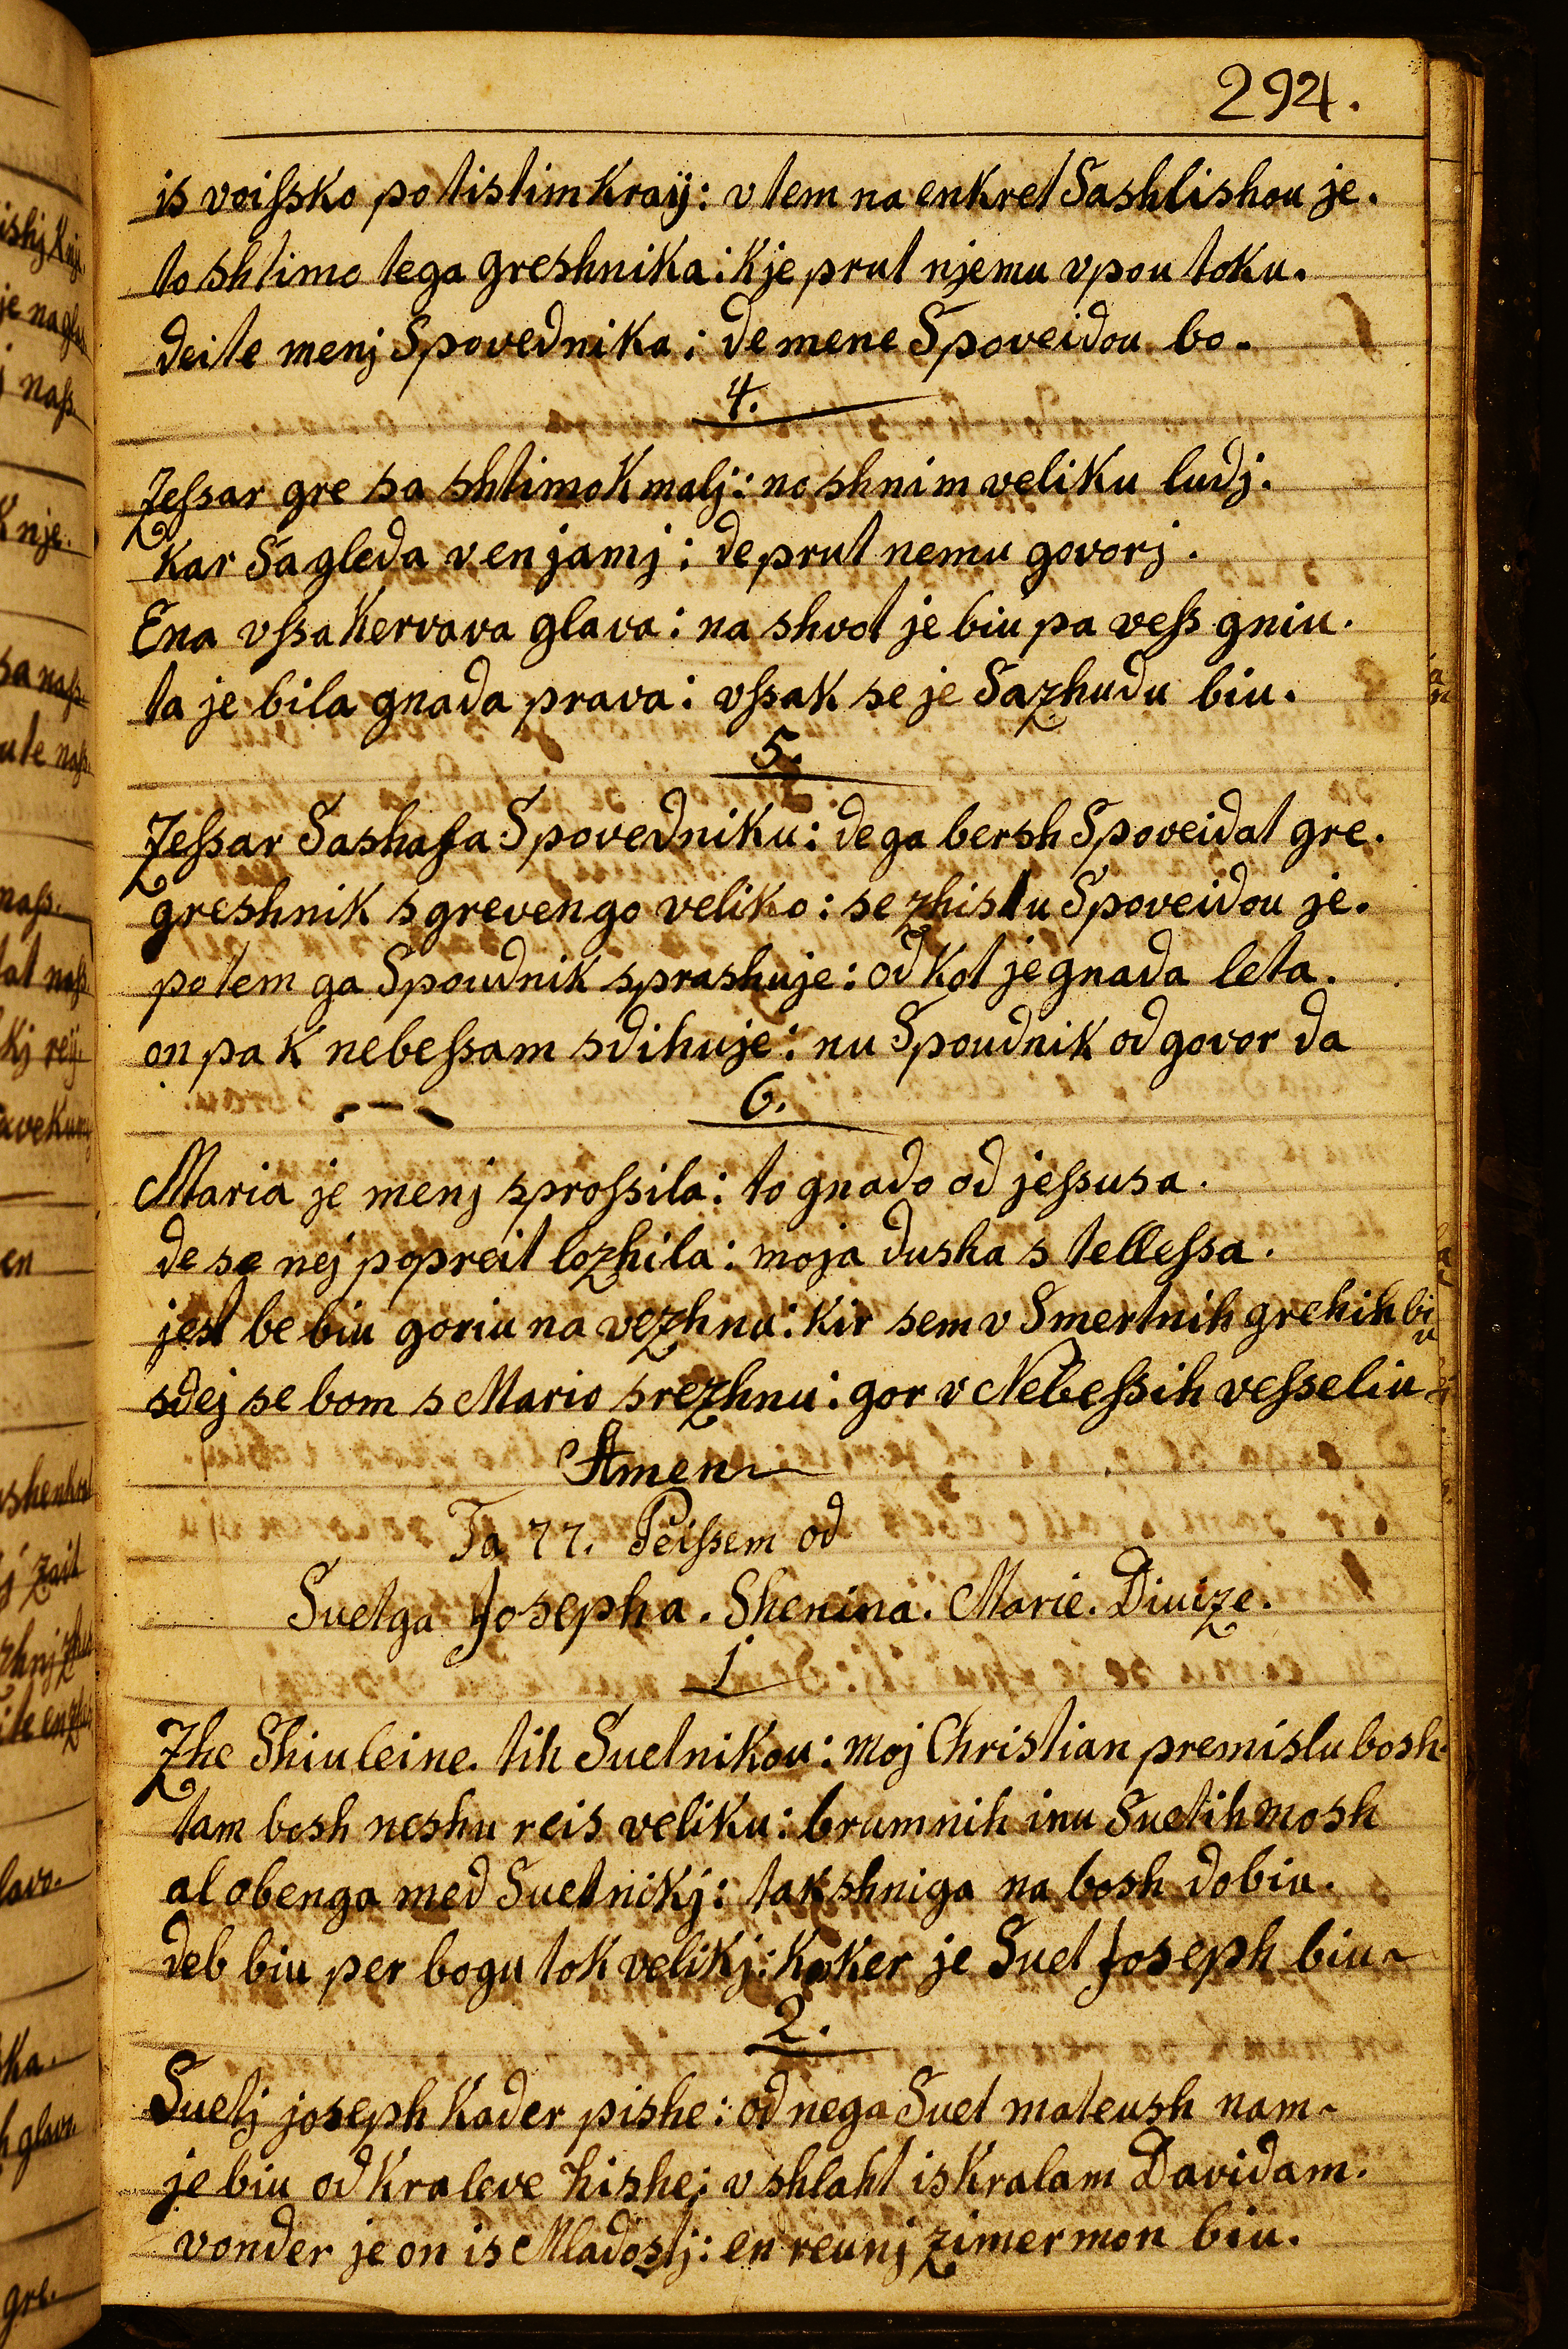 294.
is voiſsko po tistim kraÿ: v tem na enkret Sashlishou je.
to shtimo tega greshnika: k je prut njemu vpou toku.
deite menj Spovednika: de mene Spoveidou bo.
4.
Zeſsar gre sa shtimo k malj: no shnim veliku ludj.
kar Sagleda v en jamj: de prut nemu govorj.
Ena vſsa kervava glava: na shvot je biu pa veſs gniu.
ta je bila gnada prava: vſsak se je Sazhudu biu.
5.
Zeſsar Sashafa Spovedniku: de ga bersh Spoveidat gre.
greshnik s grevengo veliko: se zhistu Spoveidou je.
potem ga Spoudnik sprashuje: od kot je gnada leta.
on pa k nebeſsam sdihuje: nu Spoudnik odgovor da
6.
Maria je menj sproſsila: to gnado od jeſsusa.
de se nej popreit lozhila: moja dusha s telleſsa.
jest be biu goriu na vezhnu: kir sem v Smertnih grehih biu
sdej se bom s Mario srezhnu: gor v Nebeſsih veſseliu
Amen
Ta 77. Peiſsem od
Suetga Josepha. Shenina. Marie. Divize.
1
Zhe Shiuleine. tih Suetnikou: moj Christian premislu bosh.
tam bosh neshu reis veliku: brumnih inu Suetih mosh
al obenga med Suetnikj: takshniga na bosh dobiu.
deb biu per bogu tok velikj: koker je Suet Joseph biu
2.
Suetj joseph kader pishe: od nega Suet mateush nam
je biu od kraleve hishe: v shlaht is kralam Davidam.
vonder je on is Mladostj: en reunj zimermon biu.